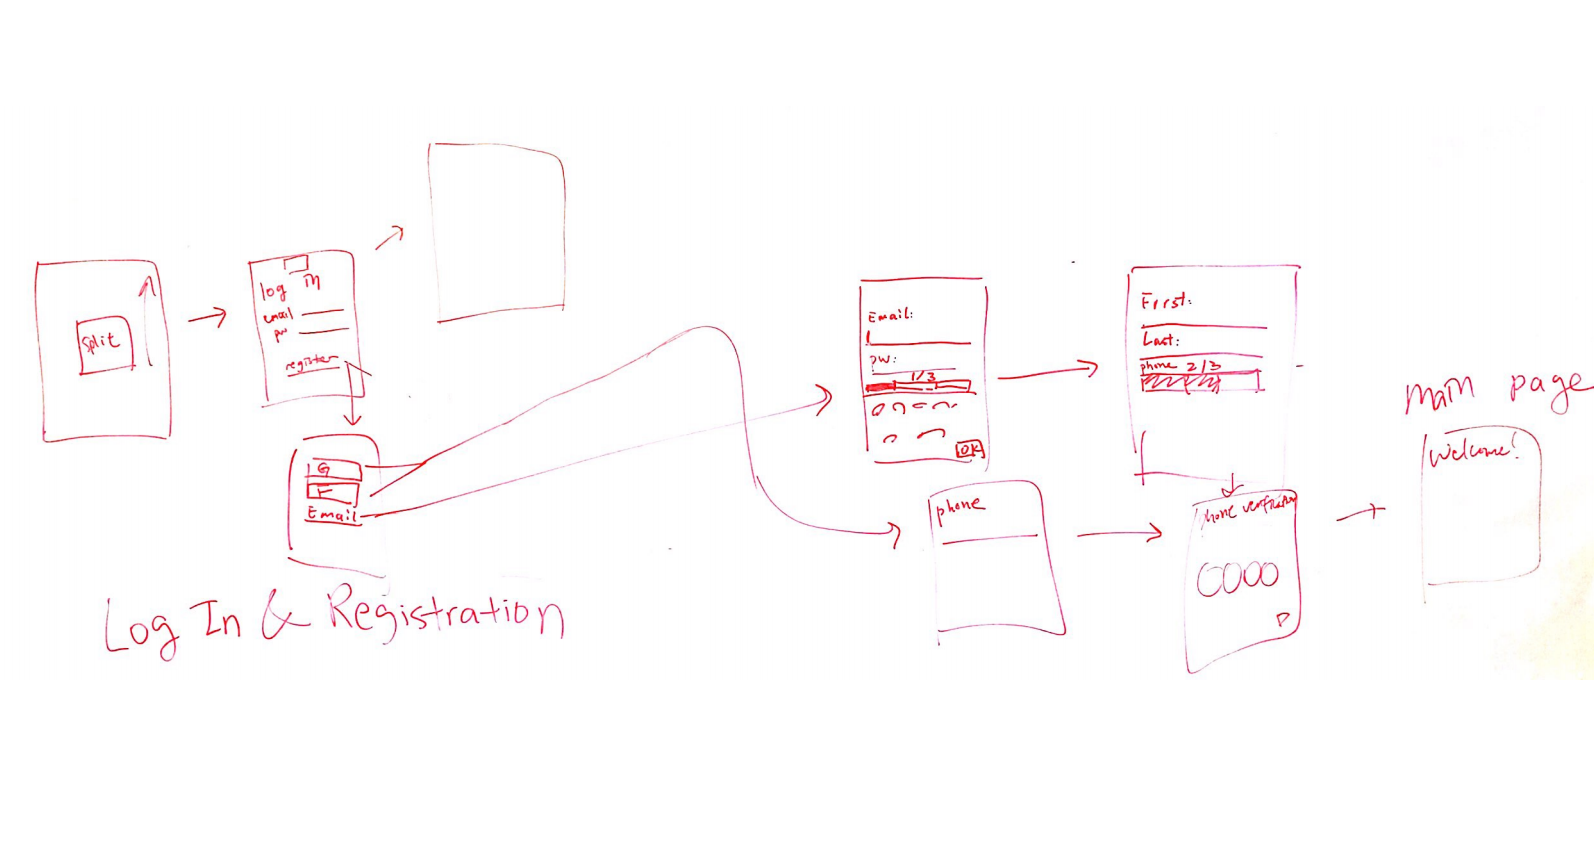 Split
log in
email
pw
register
G
F
Email
Log In & Registration
Email:
pw:
1/3
OK
First:
Last:
phone 2/3
phone
phone verification
main page
Welcome!